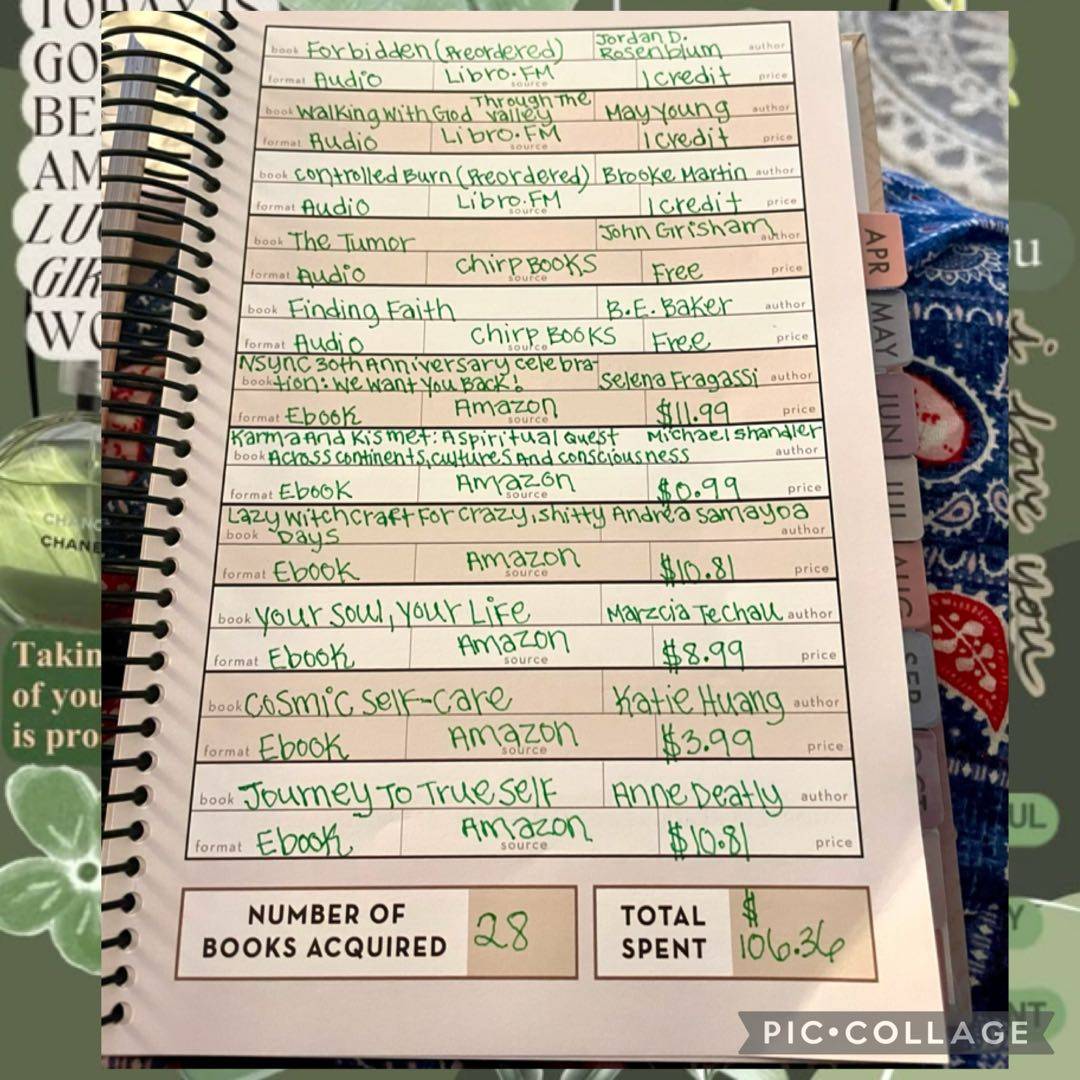 TODAY IS
GO
BE
AM
LUC
GIR
WO
book Forbidden (Preordered) Jordan D. Rosenblum author
format Audio Libro.FM source 1 credit price
book Walking With God Through The Valley May Young author
format Audio Libro.FM source 1 credit price
book Controlled Burn (Preordered) Brooke Martin author
format Audio Libro.FM source 1 credit price
book The Tumor John Grisham author
format Audio Chirp BOOKS source Free price
book Finding Faith B.E. Baker author
format Audio Chirp BOOKS source Free price
NSYNC 30th Anniversary celebra-
book tion: We Want You Back! Selena Fragassi author
format Ebook Amazon source $11.99 price
Karma And Kismet: A spiritual Quest Michael Shandler
book Across continents, cultures And consciousness author
format Ebook Amazon source $0.99 price
Lazy Witchcraft For Crazy, Shitty Andrea Samayoa
book Days author
format Ebook Amazon source $10.81 price
book Your Soul, Your Life Marzcia Techau author
format Ebook Amazon source $8.99 price
book Cosmic Self-Care Katie Huang author
format Ebook Amazon source $3.99 price
book Journey To True Self Anne Deatly author
format Ebook Amazon source $10.81 price
NUMBER OF
BOOKS ACQUIRED 28
TOTAL
SPENT $ 106.36
APR
MAY
JUN
JUL
AUG
SEP
OCT
CHANC
CHANE
Takin
of you
is pro
u
i love you
UL
Y
NT
PIC•COLLAGE